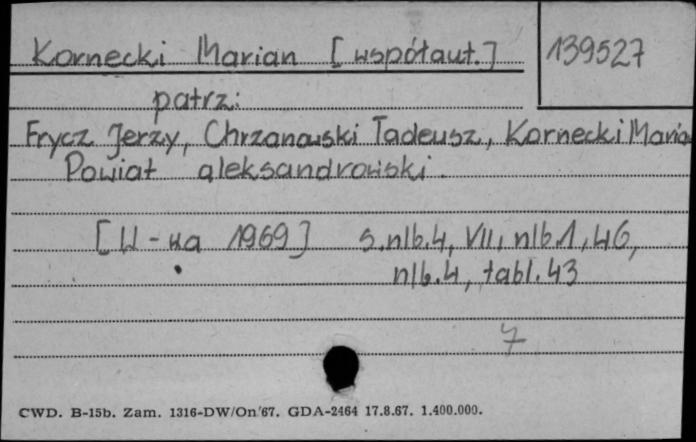 Kornecki Marian [współaut.]
139527
patrz:
Frycz Jerzy, Chrzanowski Tadeusz, Kornecki Maria
Powiat aleksandrowski.
[W-wa 1969] s.nlb.4, VII, nlb 1, 46,
nlb.4, tabl.43
7
CWD. B-15b. Zam. 1316-DW/On/67. GDA-2464 17.8.67. 1.400.000.